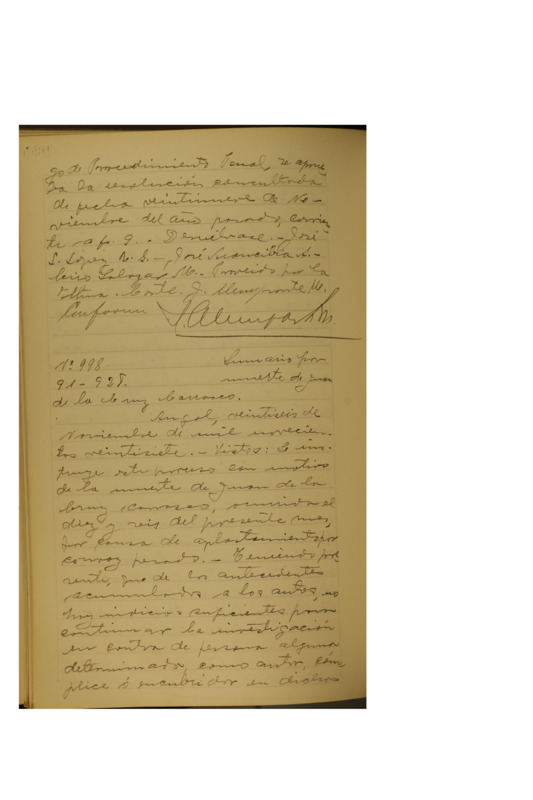 go de Procedimiento Penal, se aprue
ba la resolución consultada
de fecha veintinueve de No-
viembre del año pasado, corrien
te a fs. 9. - Devuélvase. - José
S. López R. S. - José Arancibia A. -
Salazar M. - Proveído por la
Iltma. Corte. J. M.
Conforme
N° 998 Sumario por
91 - 928. muerte de Juan
de la Cruz Carrasco.
Angol, veintiseis de
Noviembre de mil novecien-
tos veintisiete. - Vistos: Se ins-
truye este proceso con motivo
de la muerte de Juan de la
Cruz Carrasco, ocurrida el
diez y seis del presente mes,
por causa de aplastamiento por
convoy pesado. - Teniendo pre-
sente, que de los antecedentes
acumulados a los autos, no
hay indicios suficientes para
continuar la investigación
en contra de persona alguna
determinada, como autor, cóm-
plice ó encubridor en dichos